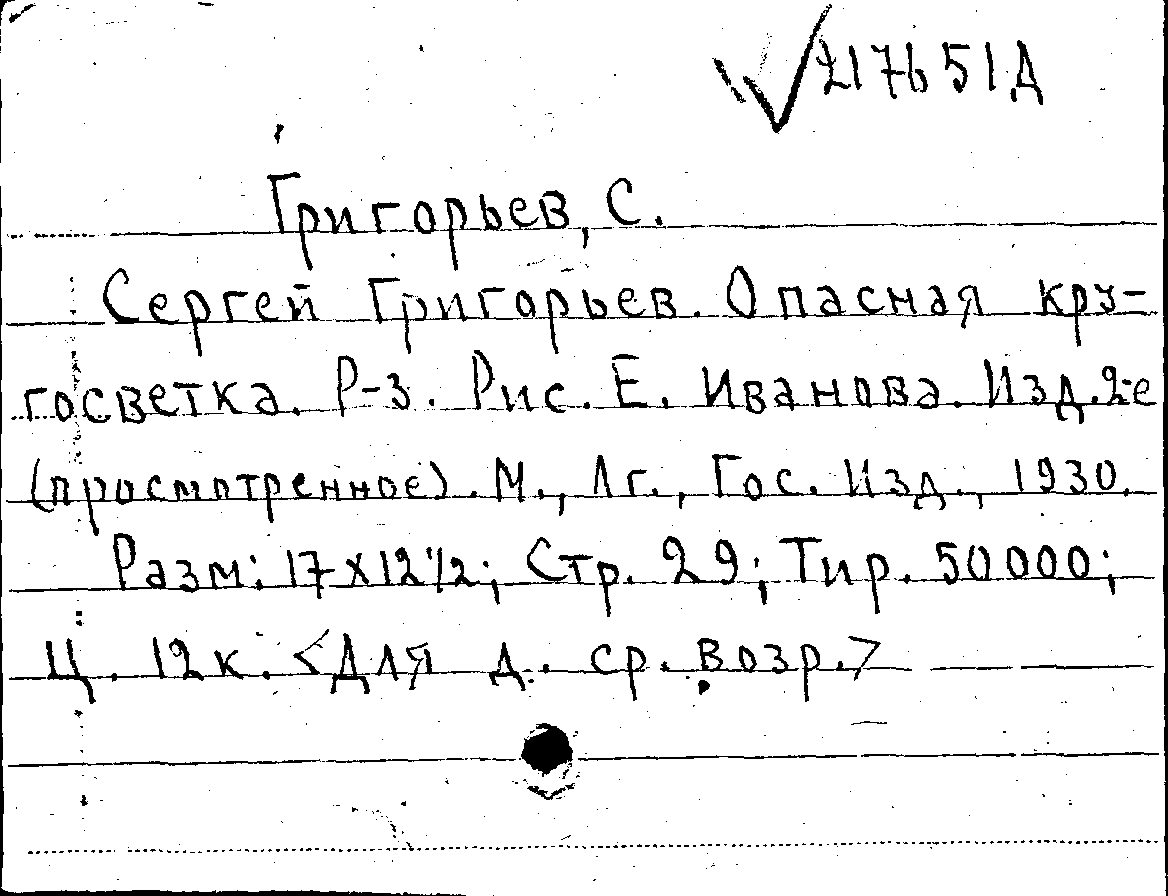 217651Д
Григорьев, С.
Сергей Григорьев. Опасная кру-
госветка. Р-з. Рис. Е. Иванова. Изд. 2-е
(просмотренное). М., Лг., Гос. Изд., 1930.
Разм: 17х12 1/2; Стр. 29; Тир. 50000;
Ц. 12к. <Для д. ср. возр.>